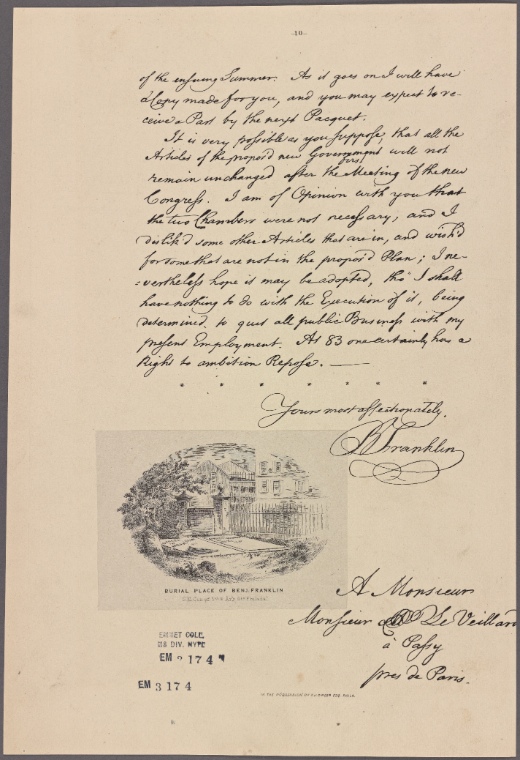 -10-
of the ensuing Summer. As it goes on I will have
a Copy made for you, and you may expect to re-
ceive a Part by the next Pacquet.
It is very possible as you suppose, that all the
Articles of the propos'd new Government will not
remain unchanged after the first Meeting of the new
Congress. I am of Opinion with you that
the two Chambers were not necessary; and I
dislik'd some other Articles that are in, and wish'd
for some that are not in the propos'd Plan; I ne-
=vertheless hope it may be adopted, tho' I shall
have nothing to do with the Execution of it, being
determined to quit all public Business with my
present Employment. At 83 one certainly has a
Right to ambition Repose. —
* * * * * * *
Yours most affectionately,
B Franklin
BURIAL PLACE OF BENJ. FRANKLIN
A Monsieur
Monsieur Le Veillard
à Passy
près de Paris.
EMMET COLL.
MS DIV. NYPL
EM 3174
EM 3174
IN THE POSSESSION OF